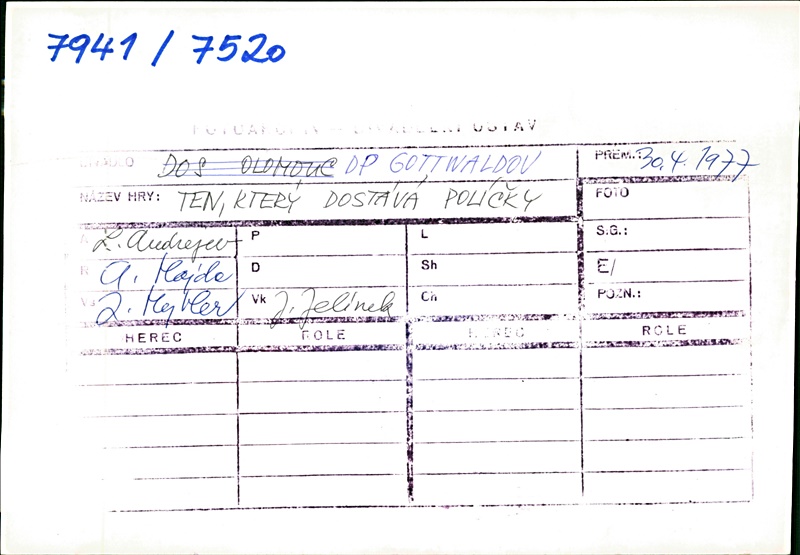 7941 / 7520
DIVADLO DOS OLOMOUC DP GOTTWALDOV PREM.: 30.4.1977
NÁZEV HRY: TEN, KTERÝ DOSTÁVÁ POLÍČKY FOTO
A L. Andrejev P L S.G.:
R A. Hajda D Sh E/
Vk J. Jelínek Ch POZN.:
HEREC ROLE HEREC ROLE